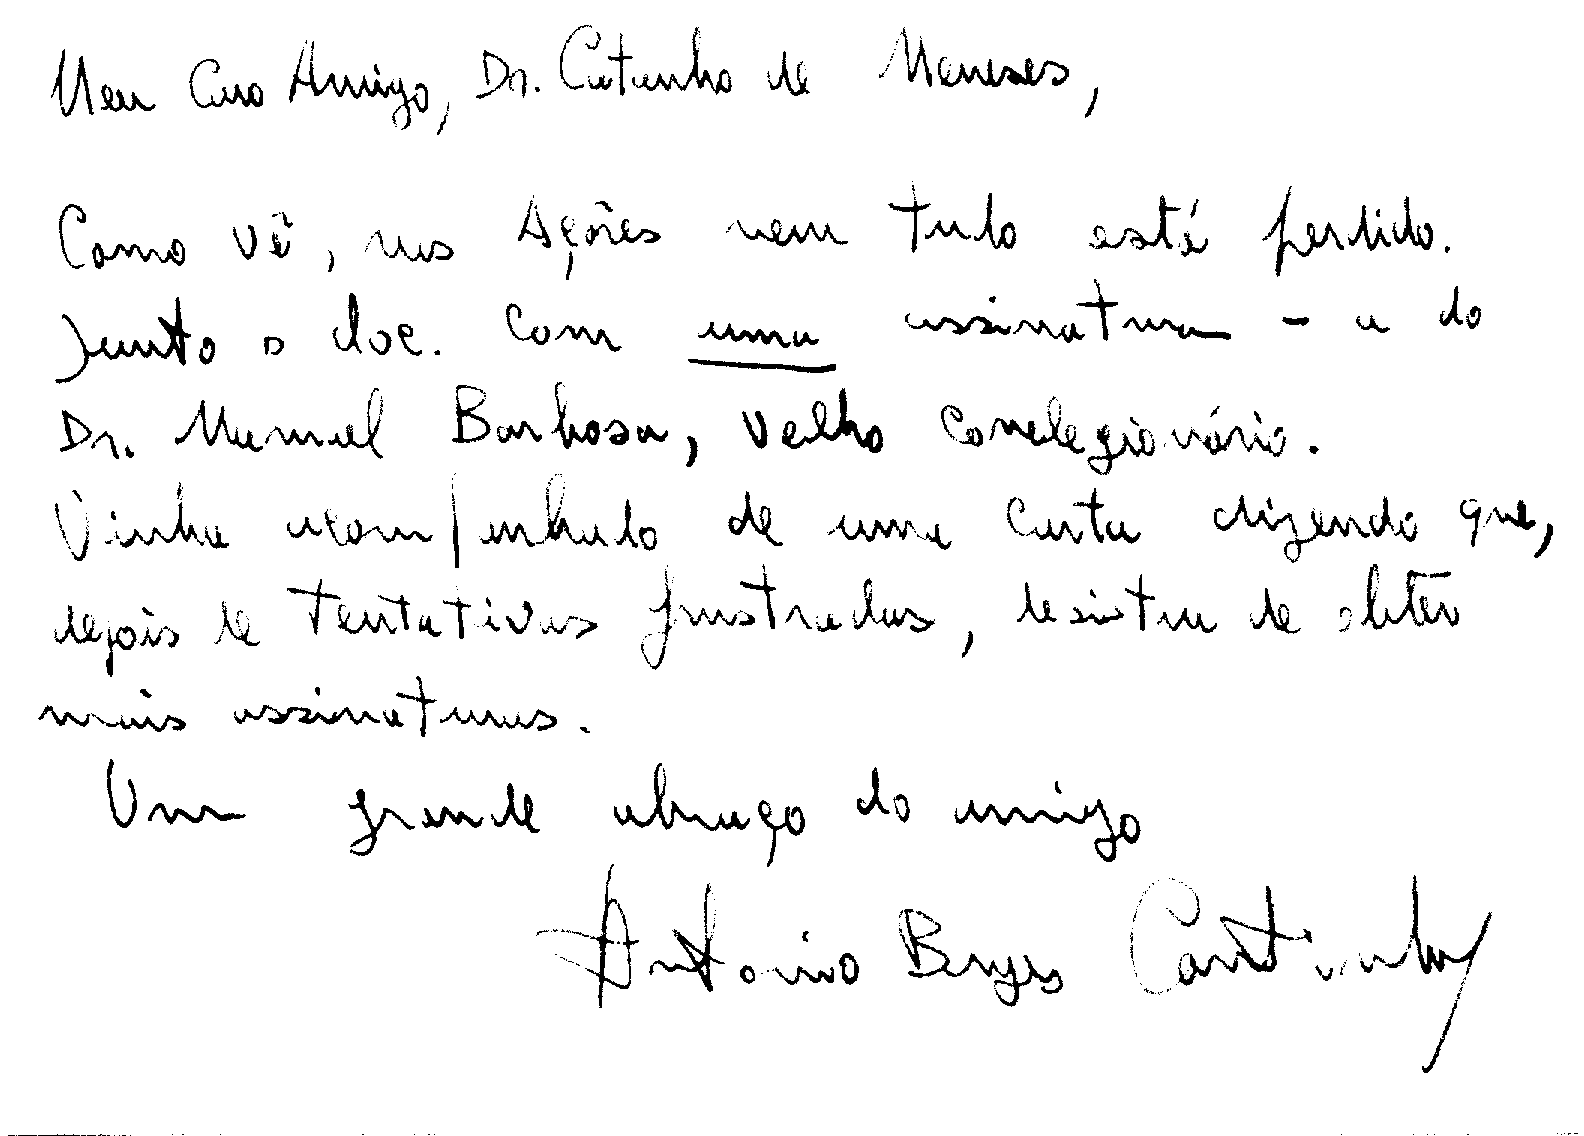 Meu Caro Amigo, Dr. Catanho de Meneses,
Como vê, nos Açores nem tudo está perdido.
Junto o doc. com uma assinatura - a do
Dr. Manuel Barbosa, velho correlegionário.
Vinha acompanhado de uma carta dizendo que,
depois de tentativas frustradas, desistia de obter
mais assinaturas.
Um grande abraço do amigo
António Borges Coutinho